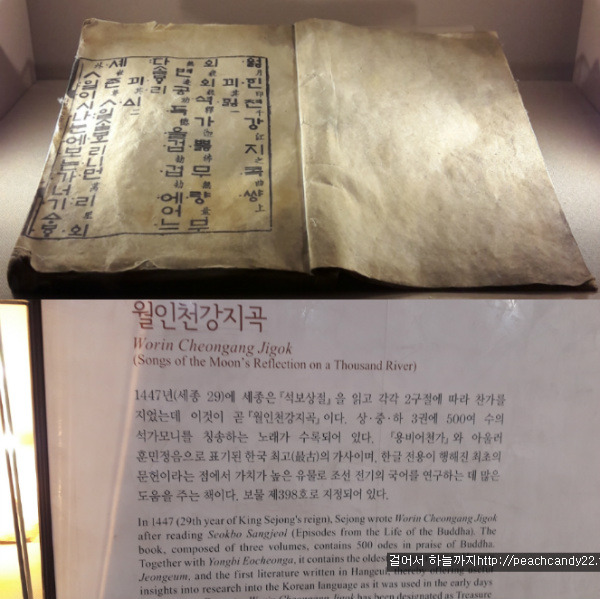 월月인印쳔千강江지之콕曲썅上
끠其ᅙᅵᇙ一
외巍외巍셕釋가迦뿛佛무無량量무無
변邊공功득德을겁劫겁劫에어느
다ᄉᆞᆯᄫᆞ리
끠其ᅀᅵ二
세世존尊ㅅ일ᄉᆞᆯᄫᅩ리니먼萬리里외外
ㅅ일이시나눈에보논가너기ᅀᆞᄫᆞ
월인천강지곡
Worin Cheongang Jigok
(Songs of the Moon's Reflection on a Thousand River)
1447년(세종 29)에 세종은 『석보상절』을 읽고 각각 2구절에 따라 찬가를
지었는데 이것이 곧 『월인천강지곡』이다. 상·중·하 3권에 500여 수의
석가모니를 칭송하는 노래가 수록되어 있다. 『용비어천가』와 아울러
훈민정음으로 표기된 한국 최고(最古)의 가사이며, 한글 전용이 행해진 최초의
문헌이라는 점에서 가치가 높은 유물로 조선 전기의 국어를 연구하는 데 많은
도움을 주는 책이다. 보물 제398호로 지정되어 있다.
In 1447 (29th year of King Sejong's reign), Sejong wrote Worin Cheongang Jigok
after reading Seokbo Sangjeol (Episodes from the Life of the Buddha). The
book, composed of three volumes, contains 500 odes in praise of Buddha.
Together with Yongbi Eocheonga, it contains the oldest
Jeongeum, and the first literature written in Hangeul, thereby offering useful
insights into research into the Korean language as it was used in the early days
Worin Cheongang Jigok has been designated as Treasure
걸어서 하늘까지http://peachcandy22.